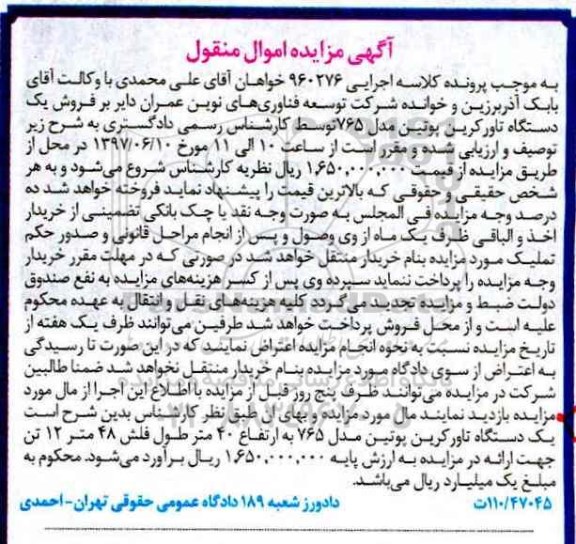 آگهی مزایده اموال منقول
به موجب پرونده کلاسه اجرایی ۹۶۰۲۷۶ خواهان آقای علی محمدی با وکالت آقای
بابک آذربرزین و خوانده شرکت توسعه فناوری‌های نوین عمران دایر بر فروش یک
دستگاه تاورکرین پوتین مدل ۷۶۵توسط کارشناس رسمی دادگستری به شرح زیر
توصیف و ارزیابی شده و مقرر است از ساعت ۱۰ الی ۱۱ مورخ ۱۳۹۷/۰۶/۱۰ در محل از
طریق مزایده از قیمت ۱,۶۵۰,۰۰۰,۰۰۰ ریال نظریه کارشناس شروع می‌شود و به هر
شخص حقیقی و حقوقی که بالاترین قیمت را پیشنهاد نماید فروخته خواهد شد ده
درصد وجه مزایده فی المجلس به صورت وجه نقد یا چک بانکی تضمینی از خریدار
اخذ و الباقی ظرف یک ماه از وی وصول و پس از انجام مراحل قانونی و صدور حکم
تملیک مورد مزایده بنام خریدار منتقل خواهد شد در صورتی که در مهلت مقرر خریدار
وجه مزایده را پرداخت ننماید سپرده وی پس از کسر هزینه‌های مزایده به نفع صندوق
دولت ضبط و مزایده تجدید می‌گردد کلیه هزینه‌های نقل و انتقال به عهده محکوم
علیه است و از محل فروش پرداخت خواهد شد طرفین می‌توانند ظرف یک هفته از
تاریخ مزایده نسبت به نحوه انجام مزایده اعتراض نمایند که در این صورت تا رسیدگی
به اعتراض از سوی دادگاه مورد مزایده بنام خریدار منتقل نخواهد شد ضمنا طالبین
شرکت در مزایده می‌توانند ظرف پنج روز قبل از مزایده با اطلاع این اجرا از مال مورد
مزایده بازدید نمایند مال مورد مزایده و بهای آن طبق نظر کارشناس بدین شرح است
یک دستگاه تاورکرین پوتین مدل ۷۶۵ به ارتفاع ۴۰ متر طول فلش ۴۸ متر ۱۲ تن
جهت ارائه در مزایده به ارزش پایه ۱,۶۵۰,۰۰۰,۰۰۰ ریال برآورد می‌شود. محکوم به
مبلغ یک میلیارد ریال می‌باشد.
۱۱۰/۴۷۰۴۵ت دادورز شعبه ۱۸۹ دادگاه عمومی حقوقی تهران-احمدی